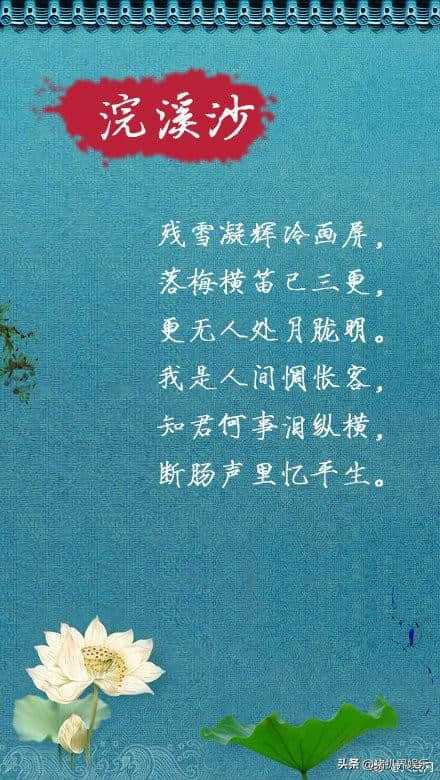 浣溪沙
残雪凝辉冷画屏，
落梅横笛已三更，
更无人处月胧明。
我是人间惆怅客，
知君何事泪纵横，
断肠声里忆平生。